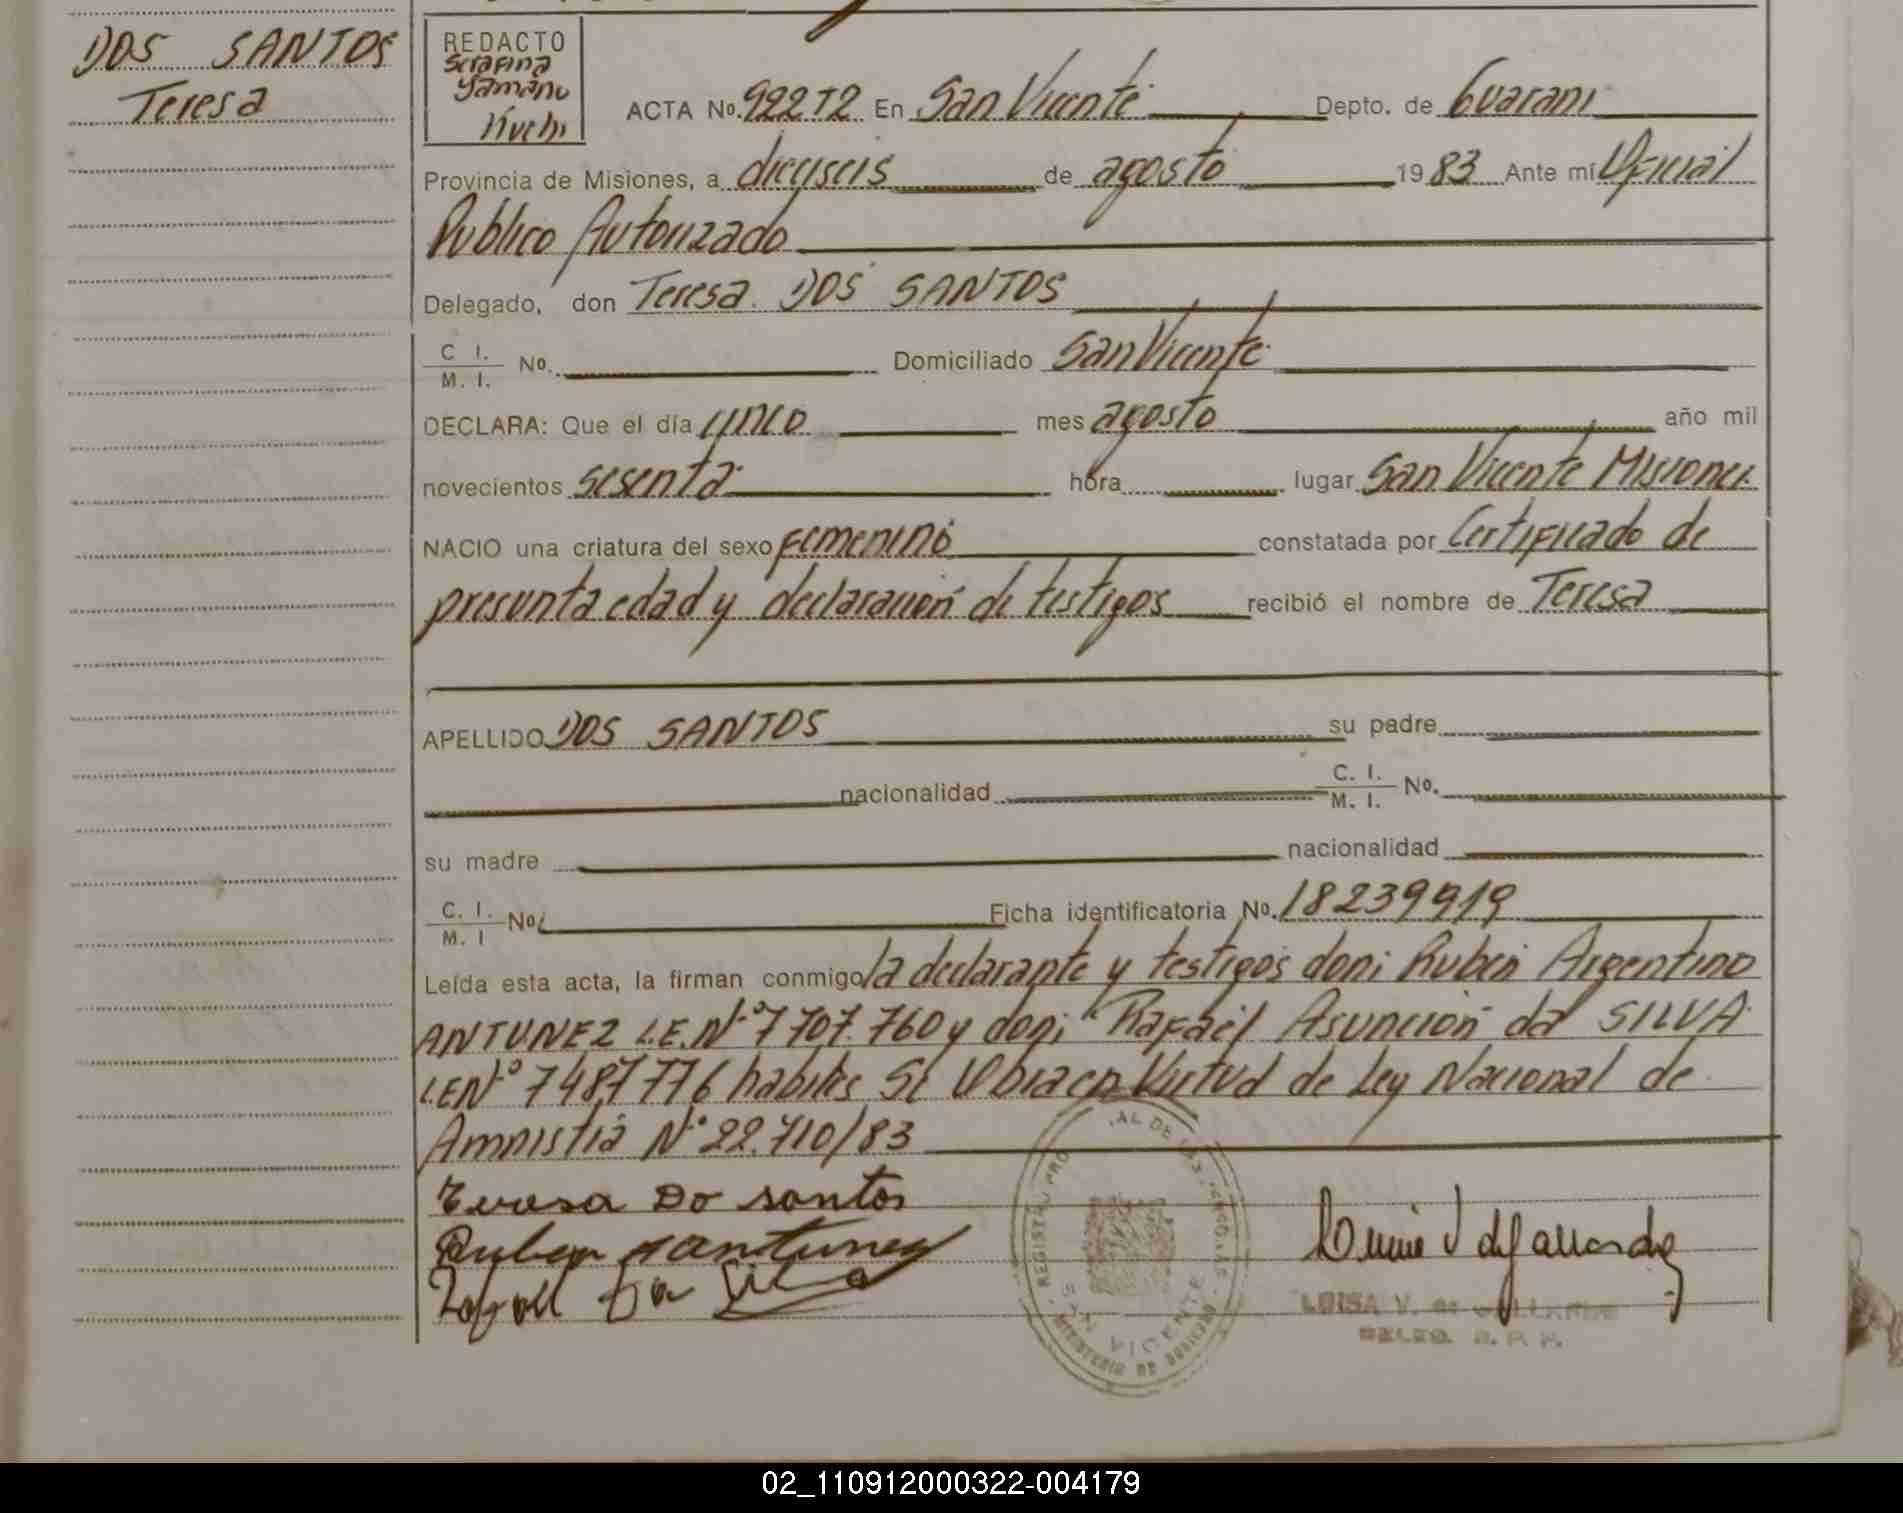 DOS SANTOS
Teresa
REDACTO
Serafina
ACTA No. 922 T2 En San Vicente Depto. de Guarani
Provincia de Misiones, a dieciseis de agosto 1983 Ante mí Oficial
Publico Autorizado
Delegado, don Teresa DOS SANTOS
C. I. / M. I. No. Domiciliado San Vicente
DECLARA: Que el día cinco mes agosto año mil
novecientos sesenta hora lugar San Vicente Misiones
NACIO una criatura del sexo femenino constatada por Certificado de
presunta edad y declaración de testigos recibió el nombre de Teresa
APELLIDO DOS SANTOS su padre
nacionalidad C. I. / M. I. No.
su madre nacionalidad
C. I. / M. I No. Ficha identificatoria No. 18239919
Leída esta acta, la firman conmigo la declarante y testigos don: Ruben Argentino
ANTUNEZ L.E.Nº 7707.760 y don: Rafael Asunción da SILVA
L.E Nº 7487776 habiles Se Obra en Virtud de Ley Nacional de
Amnistia Nº 22.710/83
Teresa Do santos
Ruben Aantunez
Rafael Da Silva
REGISTRO PRO AL DE LAS PERSONAS
SAN VICENTE
MINISTERIO DE GOBIERNO
LUISA V. de GALLARDO
DELEG. R. P. P.
02_110912000322-004179